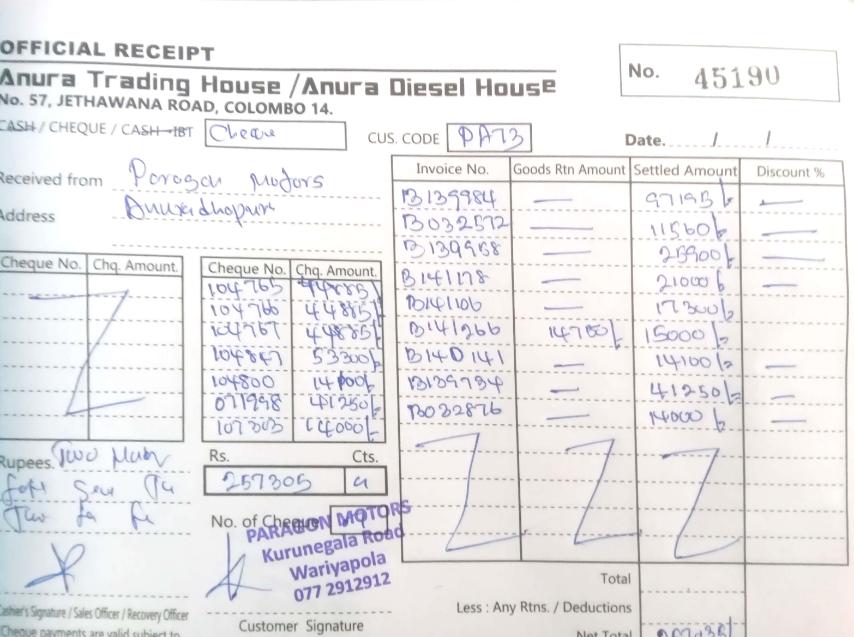 OFFICIAL RECEIPT
Anura Trading House /Anura Diesel House
No. 57, JETHAWANA ROAD, COLOMBO 14.
No. 45190
CASH / CHEQUE / CASH IBT Cheque
CUS. CODE PA73
Date. / /
Received from Paragon Motors
Address Anuradhapura
Invoice No. Goods Rtn Amount Settled Amount Discount %
B139984 — 97195/= —
B032572 — 11560/= —
B139958 — 25900/= —
B141178 — 21000/= —
B141106 — 17300/=
B141266 14780/= 15000/=
B140141 — 14100/= —
B139734 — 41250/= —
B032876 — 14000/= —
Cheque No. Chq. Amount.
Cheque No. Chq. Amount.
104765 44885/=
104766 44885/=
104767 44885/=
104847 53300/=
104800 14000/=
071998 41250/=
107303 14000/=
Rupees. Two
Rs. Cts.
257305
No. of Cheque
PARAGON MOTORS
Kurunegala Road
Wariyapola
077 2912912
Cashier's Signature / Sales Officer / Recovery Officer
Customer Signature
Cheque payments are valid subject to
Total
Less : Any Rtns. / Deductions
Net Total